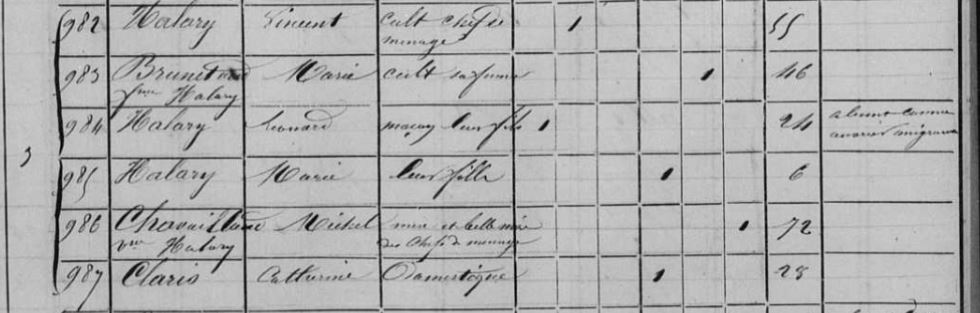 982 Halary Vincent cult chef de 1 55
menage
983 Brunet Marie cult sa femme 1 46
fme Halary
984 Halary Leonard maçon leur fils 1 24 absent comme
ouvrier migrant
3
985 Halary Marie leur fille 1 6
986 Michel mere et belle mere 1 72
vve Halary des chefs de menage
987 Claris Catherine Domestique 1 23